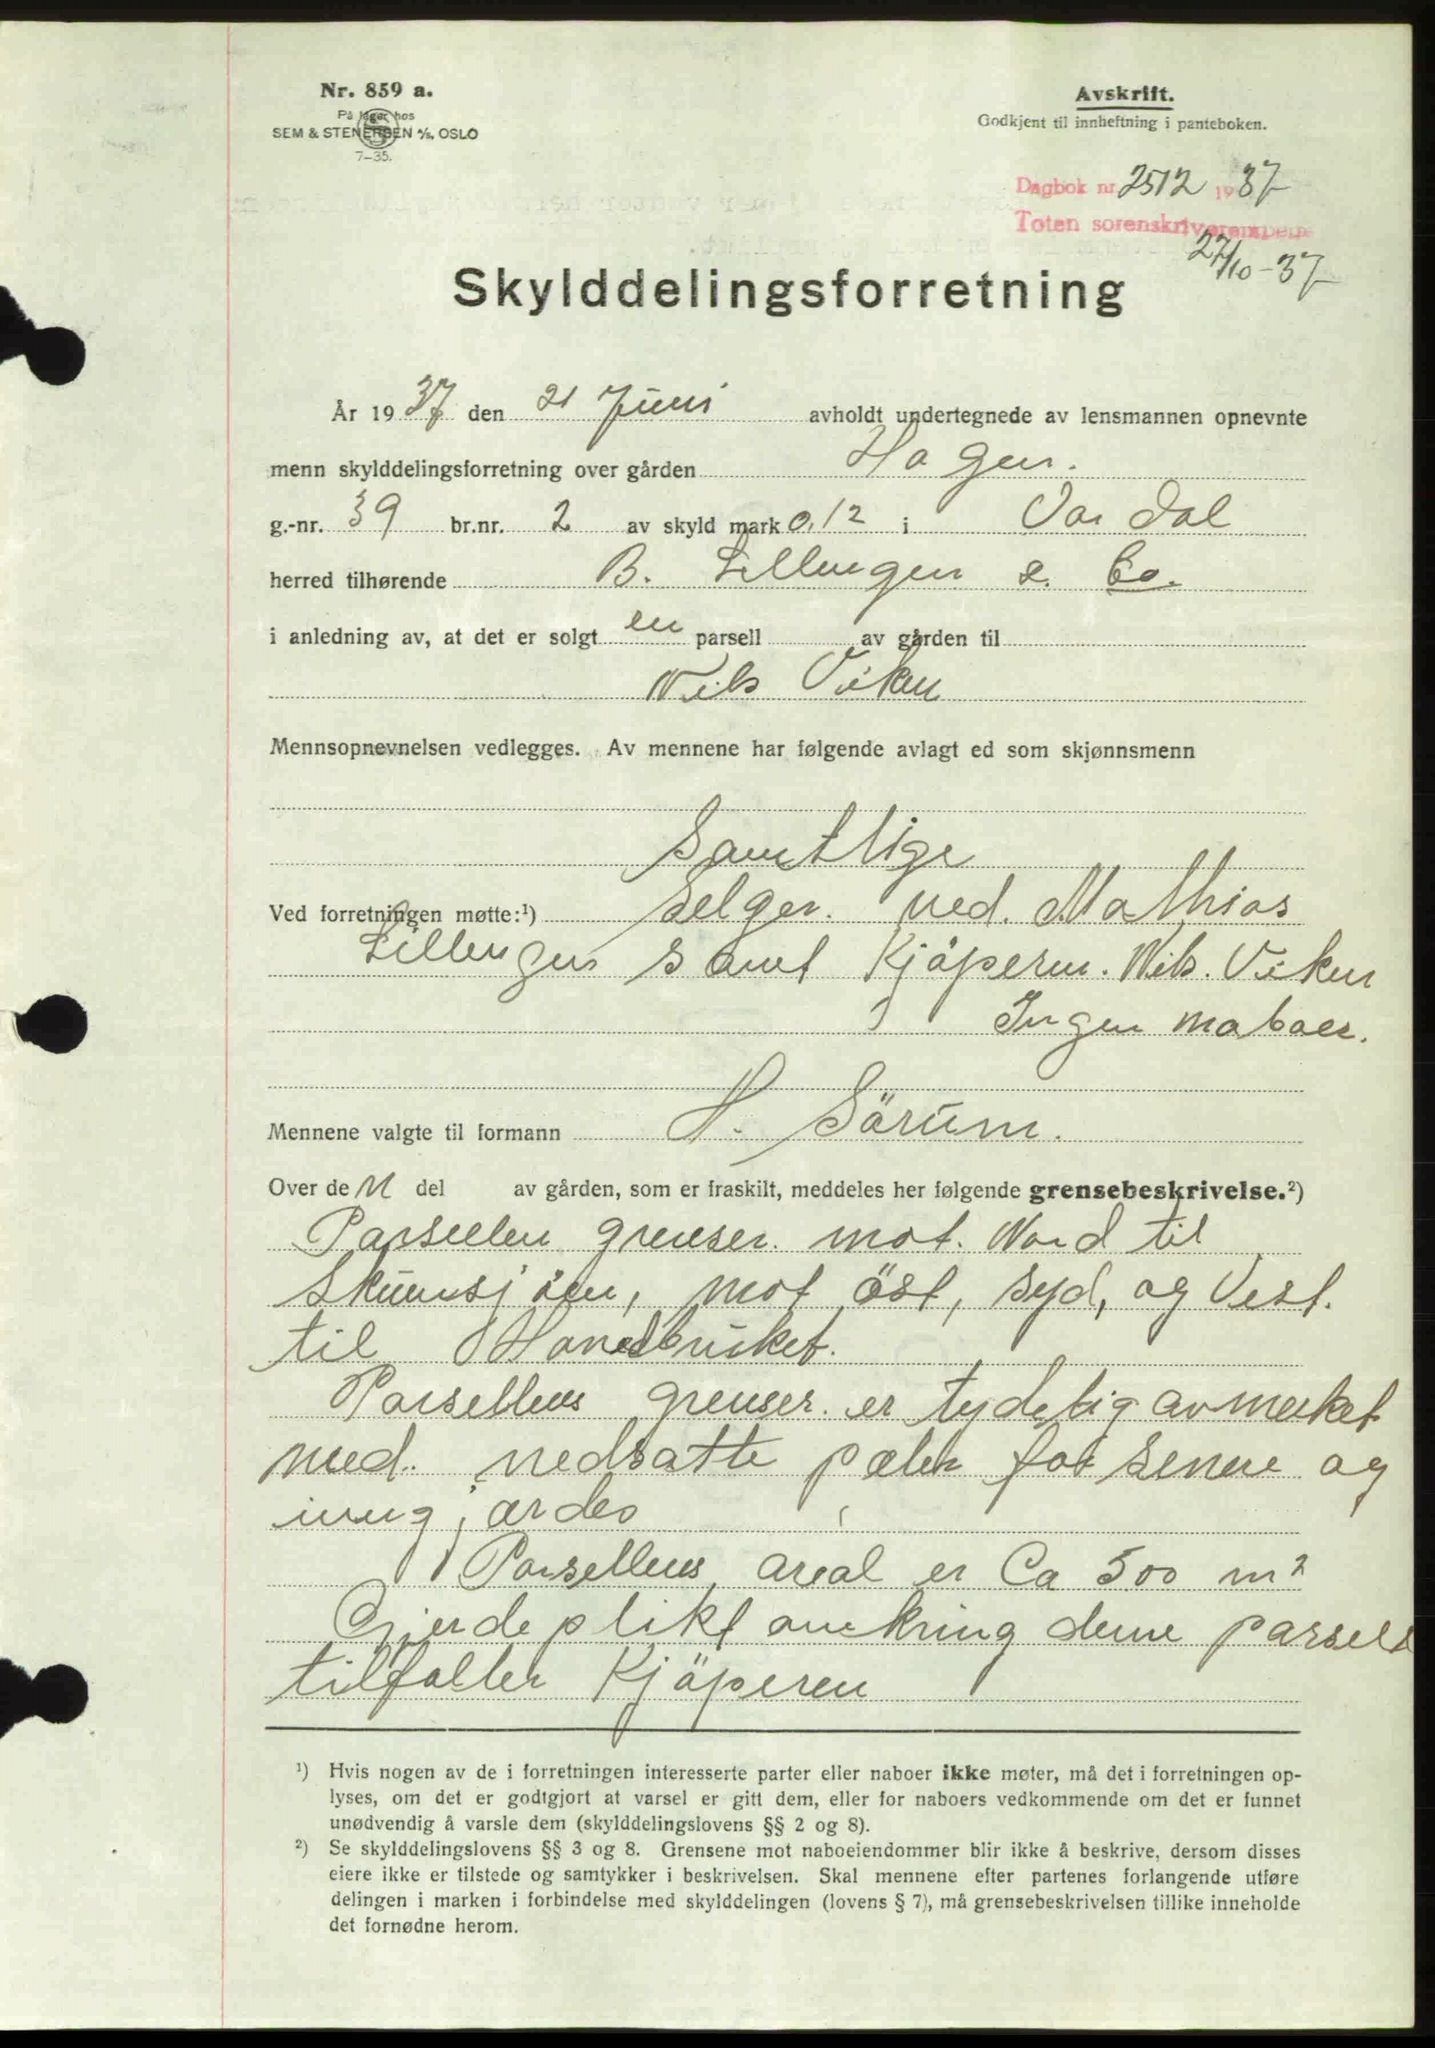 Nr. 859 a.
På lager hos
SEM & STENERSEN A/S, OSLO
7-35.
Avskrift.
Godkjent til innheftning i panteboken.
Dagbok nr. 2512 1937
Toten sorenskriverembede
27/10-37
Skylddelingsforretning
År 1937 den 21 Juni avholdt undertegnede av lensmannen opnevnte
menn skylddelingsforretning over gården Hagen.
g.-nr. 39 br.nr. 2 av skyld mark 0,12 i Vardal
herred tilhørende B. Lillengen & Co.
i anledning av, at det er solgt en parsell av gården til
Nils Viken
Mennsopnevnelsen vedlegges. Av mennene har følgende avlagt ed som skjønnsmenn
Samtlige
Ved forretningen møtte:¹) Selger. ved. Mathias
Lillengen samt Kjöperen. Nils. Viken
Ingen naboer.
Mennene valgte til formann H. Sörum.
Over den del av gården, som er fraskilt, meddeles her følgende grensebeskrivelse.²)
Parsellen grenser. mot. Nord til
Skumsjöen, mot öst, syd, og Vest.
til Hovedbruket.
Parsellens grenser. er tydelig avmerket
med. nedsatte pæler for senere og
inngjærdes
Parsellens areal er Ca 500 m²
Gjerdeplikt omkring denne parsell
tilfaller Kjöperen
¹) Hvis nogen av de i forretningen interesserte parter eller naboer ikke møter, må det i forretningen op-
lyses, om det er godtgjort at varsel er gitt dem, eller for naboers vedkommende om det er funnet
unødvendig å varsle dem (skylddelingslovens §§ 2 og 8).
²) Se skylddelingslovens §§ 3 og 8. Grensene mot naboeiendommer blir ikke å beskrive, dersom disses
eiere ikke er tilstede og samtykker i beskrivelsen. Skal mennene efter partenes forlangende utføre
delingen i marken i forbindelse med skylddelingen (lovens § 7), må grensebeskrivelsen tillike inneholde
det fornødne herom.